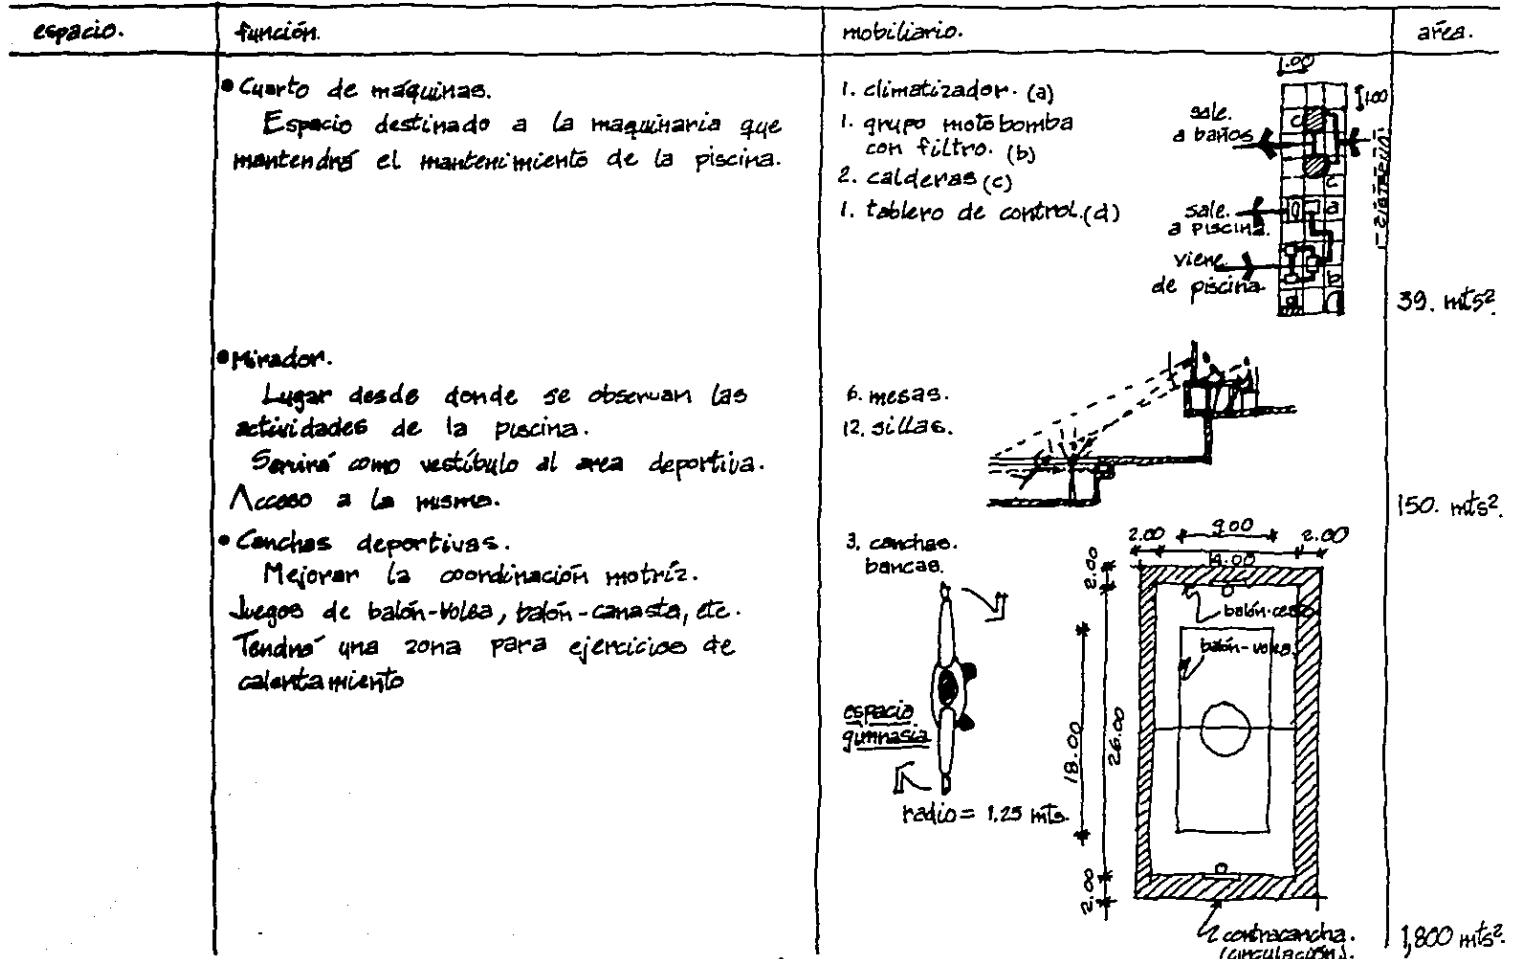 espacio.
función.
mobiliario.
área.
• Cuarto de máquinas.
Espacio destinado a la maquinaria que
mantendrá el mantenimiento de la piscina.
1. climatizador. (a)
1. grupo motobomba
con filtro. (b)
2. calderas (c)
1. tablero de control. (d)
1.00
1.00
sale.
a baños
c
c
a
sale.
a piscina.
viene.
de piscina
b
d
CISTERNA
39. mts².
• Mirador.
Lugar desde donde se observan las
actividades de la piscina.
Servirá como vestíbulo al area deportiva.
Acceso a la misma.
6. mesas.
12. sillas.
150. mts².
• Canchas deportivas.
Mejorar la coordinación motríz.
Juegos de balón-volea, balón-canasta, etc.
Tendrá una zona para ejercicios de
calentamiento
3. canchas.
bancas.
espacio
gimnasia
radio = 1.25 mts.
2.00
9.00
2.00
14.00
2.00
balón-cesto
balón-volea.
18.00
26.00
2.00
contracancha.
(circulación).
1,800 mts².